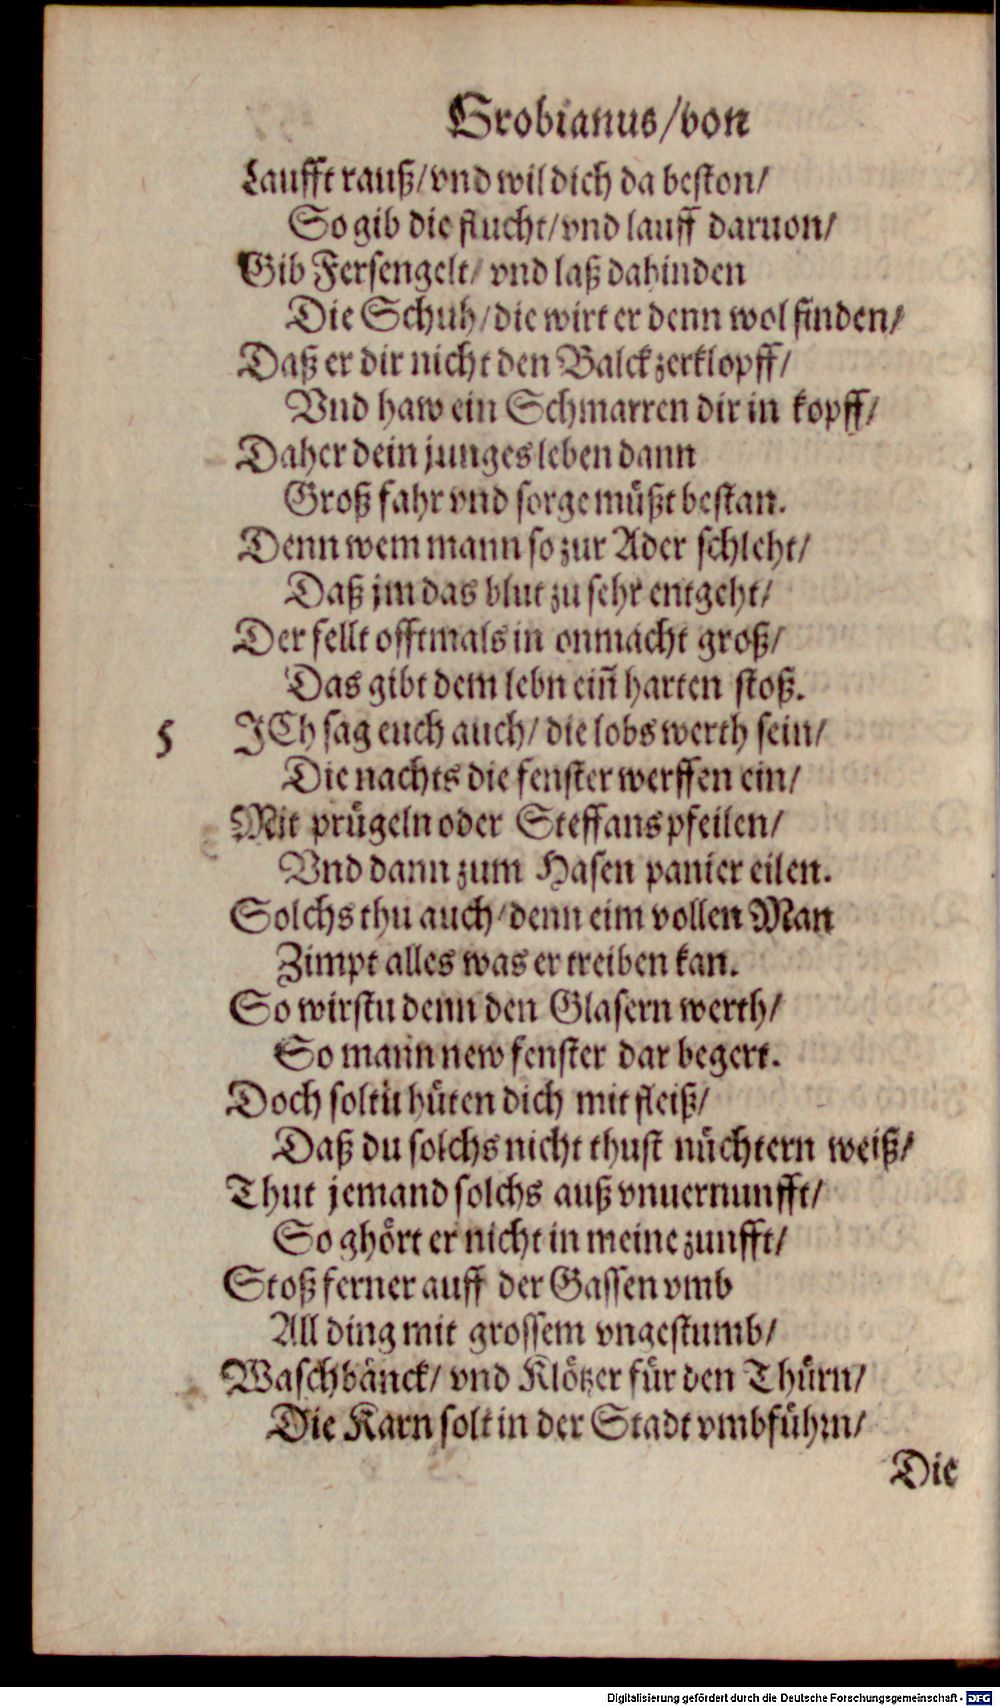 Grobianus/von
Laufft rauß/vnd wil dich da beston/
So gib die flucht/vnd lauff daruon/
Gib Fersengelt/ vnd laß dahinden
Die Schuh/die wirt er denn wol finden/
Daß er dir nicht den Balck zerklopff/
Vnd haw ein Schmarren dir in kopff/
Daher dein junges leben dann
Groß fahr vnd sorge müßt bestan.
Denn wem mann so zur Ader schleht/
Daß jm das blut zu sehr entgeht/
Der fellt offtmals in onmacht groß/
Das gibt dem lebn ein̄ harten stoß.
5 JCh sag euch auch/ die lobs werth sein/
Die nachts die fenster werffen ein/
Mit prügeln oder Steffans pfeilen/
Vnd dann zum Hasen panier eilen.
Solchs thu auch/denn eim vollen Man
Zimpt alles was er treiben kan.
So wirstu denn den Glasern werth/
So mann new fenster dar begert.
Doch soltu hüten dich mit fleiß/
Daß du solchs nicht thust nüchtern weiß/
Thut jemand solchs auß vnuernunfft/
So ghört er nicht in meine zunfft/
Stoß ferner auff der Gassen vmb
All ding mit grossem vngestumb/
Waschbänck/ vnd Klötzer für den Thürn/
Die Karn solt in der Stadt vmbführn/
Die
Digitalisierung gefördert durch die Deutsche Forschungsgemeinschaft - DFG